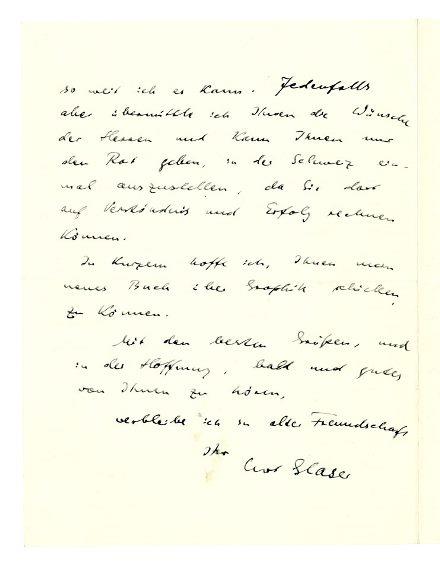 so weit ich es kann. Jedenfalls
aber übermittle ich Ihnen die Wünsche
der Herren und kann Ihnen nur
den Rat geben, in der Schweiz ein-
mal auszustellen, da Sie dort
auf Verständnis und Erfolg rechnen
können.
In Kurzem hoffe ich, Ihnen mein
neues Buch über Graphik schicken
zu können.
Mit den besten Grüßen, und
in der Hoffnung, bald und gutes
von Ihnen zu hören,
verbleibe ich in alter Freundschaft
Ihr
Curt Glaser